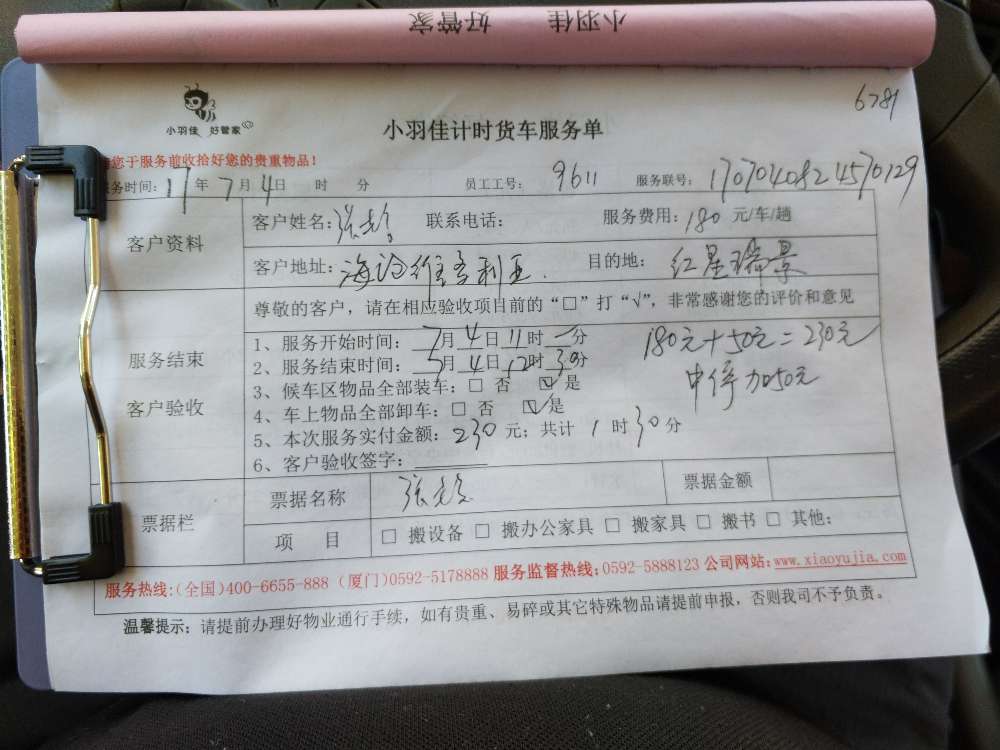 小羽佳 好管家
6781
小羽佳 好管家
小羽佳计时货车服务单
您于服务前收拾好您的贵重物品！
务时间：17年7月4日 时 分 员工工号：9611 服务联号：17070408214570129
客户资料
客户姓名：张 联系电话： 服务费用：180元/车/趟
客户地址：海沧维多利亚. 目的地：红星瑞景
尊敬的客户，请在相应验收项目前的“□”打“√”，非常感谢您的评价和意见
服务结束
客户验收
1、服务开始时间：7月4日11时一分
2、服务结束时间：7月4日12时30分
3、候车区物品全部装车：□ 否 ☑是
4、车上物品全部卸车：□ 否 ☑是
5、本次服务实付金额：230元；共计1时30分
6、客户验收签字：
180元+50元=230元
中停加50元
票据栏
票据名称 张 票据金额
项 目 □ 搬设备 □ 搬办公家具 □ 搬家具 □ 搬书 □ 其他：
服务热线：(全国)400-6655-888 (厦门)0592-5178888 服务监督热线：0592-5888123 公司网站：www.xiaoyujia.com
温馨提示：请提前办理好物业通行手续，如有贵重、易碎或其它特殊物品请提前申报，否则我司不予负责。